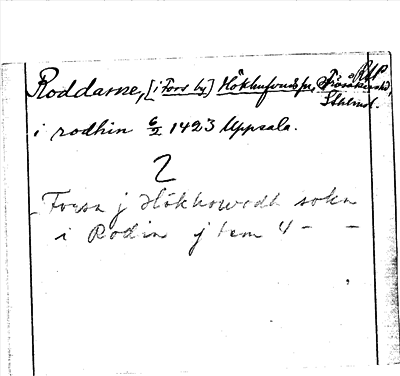 RAP
Roddarne, [i Fors by] Häkhufvuds sn, Frösåkers hd,
Sthlms l.
i rodhin 6/2 1423 Uppsala.
2
- Forsa j Hökhowodh sokn
i Rodin j tem 4 - -